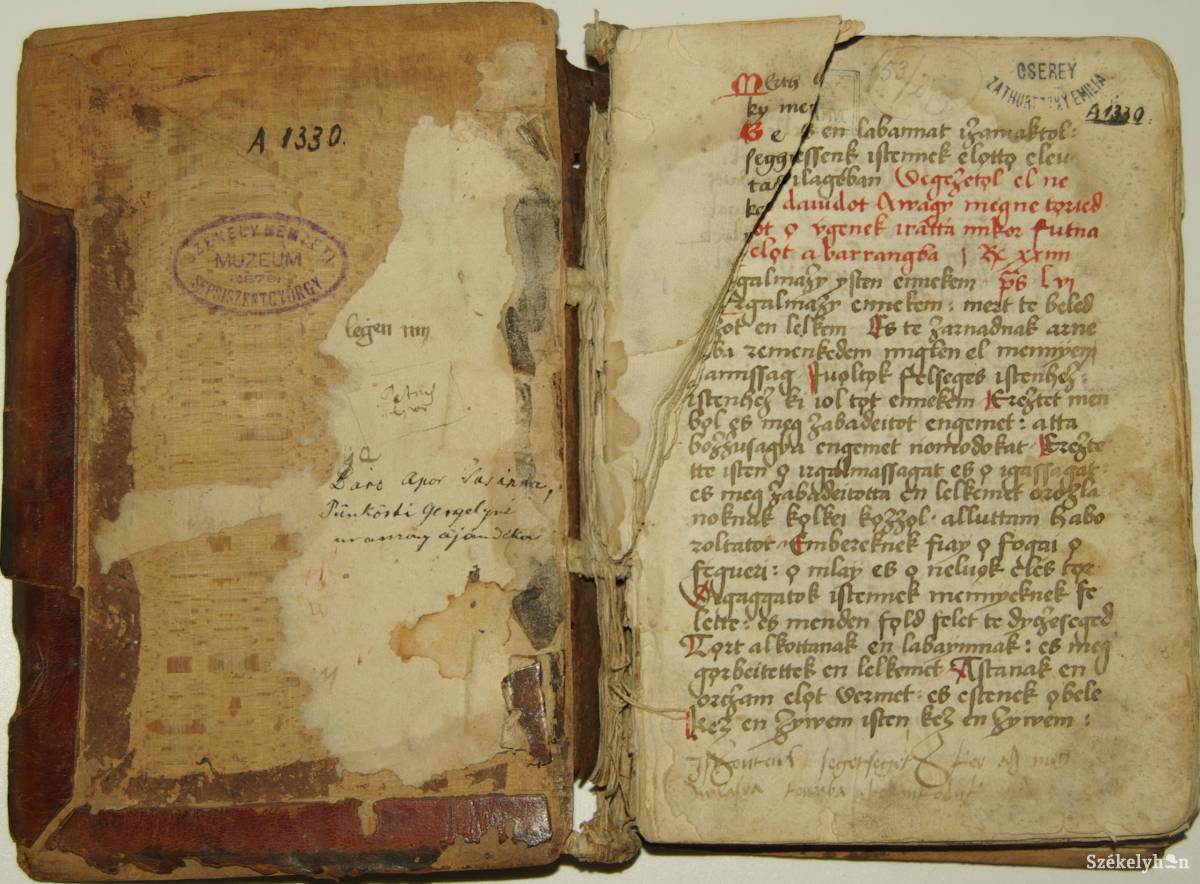 A 1330.
SZÉKELY NEMZETI
MUZEUM
1879
SEPSISZENTGYÖRGY
legen my
Báró Apor
Pünkösti Gergelyné
ajándéka
CSEREY
ZATHURECZKY EMILIA
A 1330.
ky mey
en labannat izamaktol:
seggessenk istennek elotto eleu
ilagoban Wegezetol el ne
dauidot Awagy megne toried
ot o vgenek iratta mikor futna
elot a barrangba
galmazy ysten ennekem ps lvi
rgalmazy ennekem: mert te beled
zot en lelkem Es te zarnadnak arne
ba remenkedem miglen el mennyen
amissag Iuoltok felseges istenhez:
istenhez ki iol tot ennekem Ereztet men
bol es meg zabadeitot engemet: atta
bozzusagba engemet nomodokat Erezte
tte isten o irgalmassagat es o igassagat:
es meg zabadeitotta en lelkemet orozla
noknak kolkei kozzol· alluttam habo
roltatot· Embereknek fiay o fogai o
fequeri: o nilay es o neluok eles tor·
Agaggatok istennek mennyeknek fe
lette: es menden fold felet te dychoseged
Tort alkottanak en labaymnak: es meg
gorbeitettek en lelkemet Astanak en
orcham elot vermet: es estenek obele
Kez en zywem isten kez en zywem:
Székelyhon